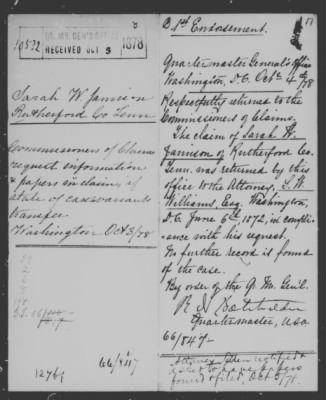 10532
QR. MR. GEN'S OFFICE
RECEIVED OCT 3
1878
Sarah W Jamison
Rutherford Co Tenn
Commissioners of Claims
request information
& papers in claim, &
state of case &
transfer
Washington Oct 3/78
66/847
12761
51
B. 1st Endorsement.
Quartermaster General's Office
Washington, D.C. Octr. 4 /78
Respectfully returned to the
Commissioners of Claims.
The claim of Sarah W.
Jamison of Rutherford Co.
Tenn. was returned by this
office to the Attorney,
Williams, Esq. Washington,
D.C. June 6th, 1872, in compli-
ance with his request.
No further record is found
of the case.
By order of the Q. M. Genl.
Quartermaster, U.S.A
66/847-
Attorney notified &
asked to have papers
found & filed, Oct 5/78.